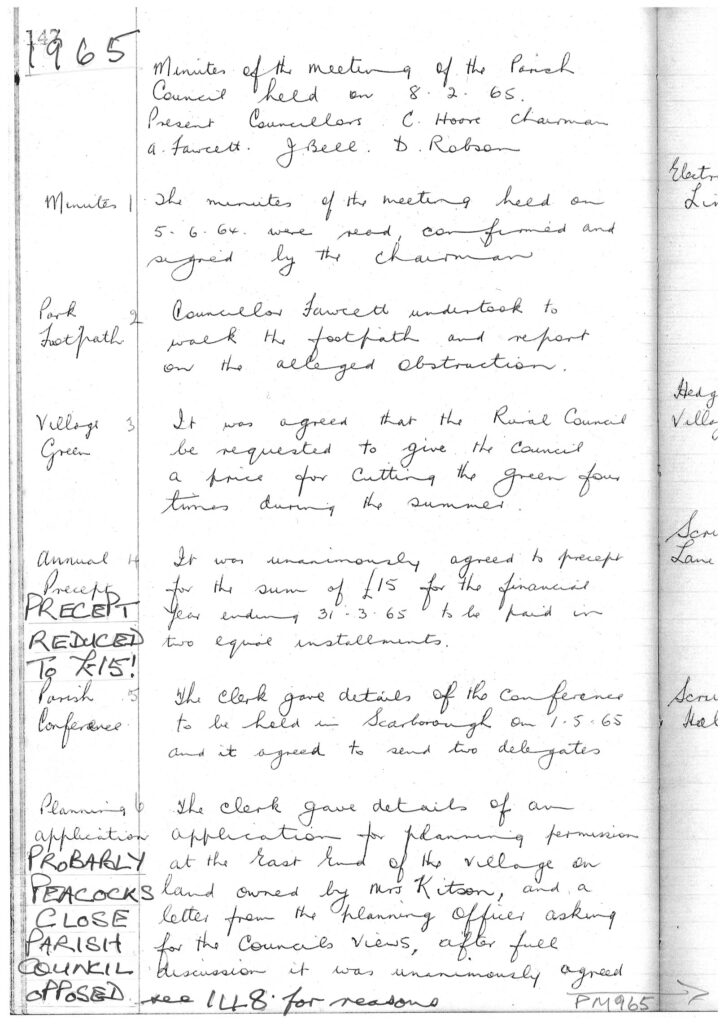 147
1965
Minutes of the meeting of the Parish
Council held on 8.2.65.
Present Councillors C. Hoore Chairman
A. Fawcett. J Bell. D. Robson
Minutes 1 The minutes of the meeting held on
5.6.64. were read, confirmed and
signed by the chairman
Park 2 Councillor Fawcett undertook to
Footpath walk the footpath and report
on the alleged obstruction.
Village 3 It was agreed that the Rural Council
Green be requested to give the council
a price for cutting the green four
times during the summer.
Annual 4 It was unanimously agreed to precept
Precept for the sum of £15 for the financial
PRECEPT year ending 31.3.65 to be paid in
REDUCED two equal installments.
TO £15!
Parish 5 The clerk gave details of the conference
Conference to be held in Scarborough on 1.5.65
and it agreed to send two delegates
Planning 6 The clerk gave details of an
application application for planning permission
PROBARLY at the East End of the village on
PEACOCKS land owned by Mrs Kitson, and a
CLOSE letter from the planning Officer asking
PARISH for the Councils views, after full
COUNCIL discussion it was unanimously agreed
OPPOSED see 148 for reasons
PM965
Electr
Lin
Hedg
Villag
Scru
Lane
Scru
Hal